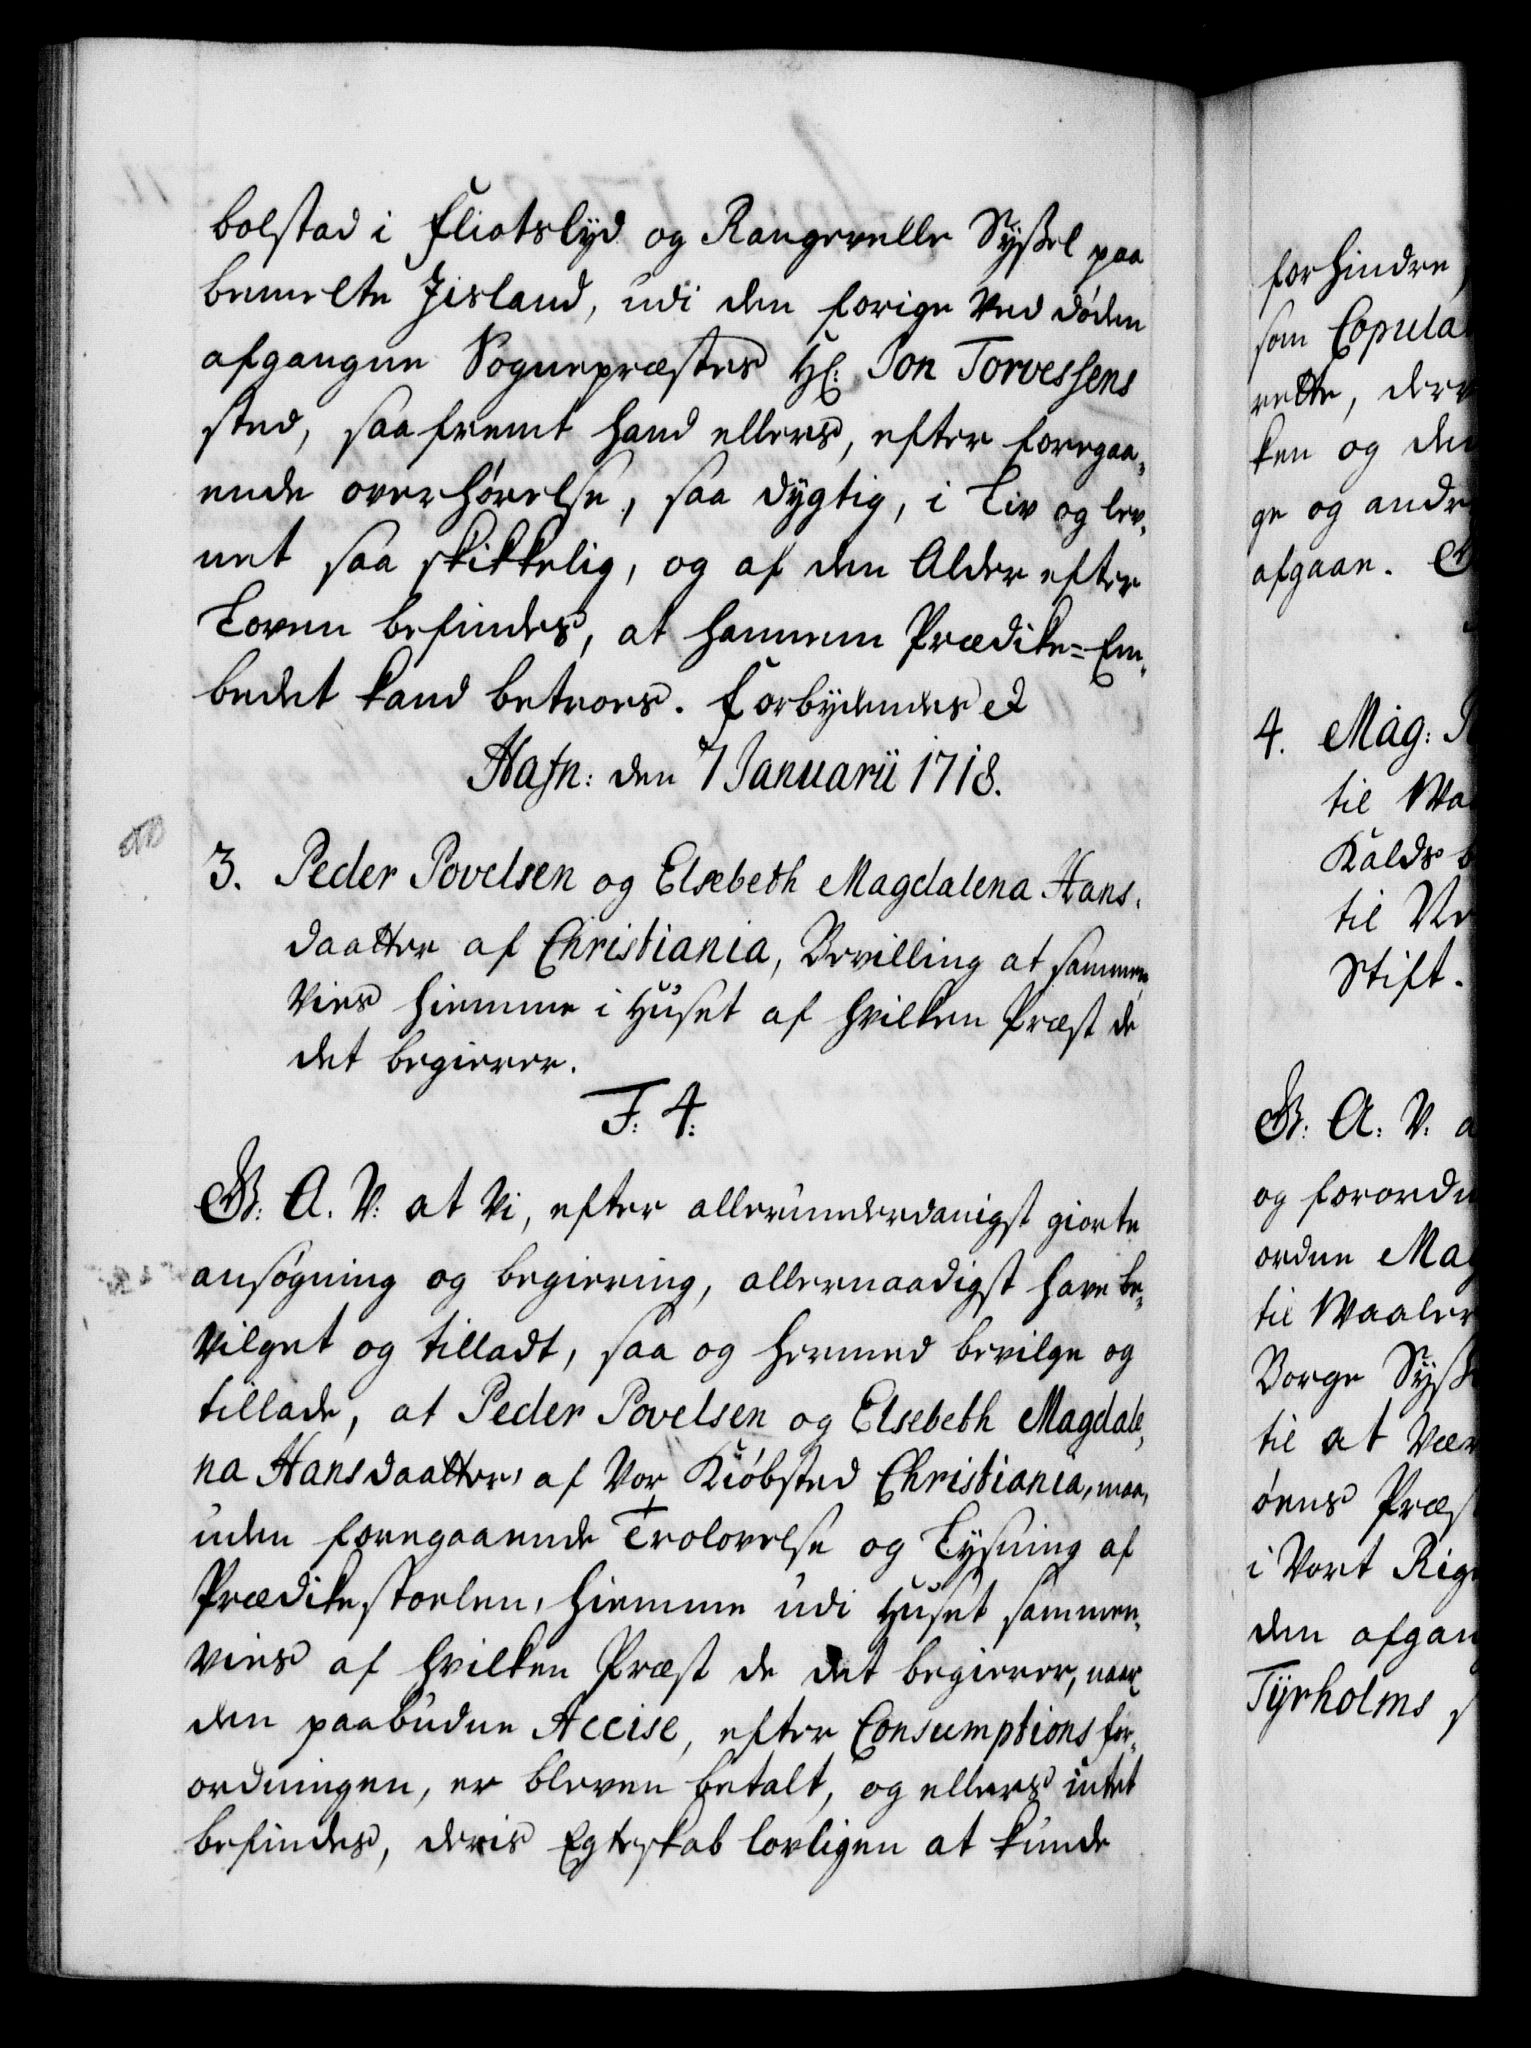 bolstad i Fliotslyd og Rangervelle Syssel paa
bemelte Jisland, udi den forige ved døden
afgangne Sognepræstes Hr: Jon Torvessens
sted, saafremt hand ellers, efter foregaa-
ende overhørelse, saa dygtig, i Liv og lev-
net saa skikkelig, og af den Alder efter
Loven befindes, at hannem Prædike-Em-
bedet kand betroes. Forbydendes etc
Hafn: den 7 Januarii 1718.
3. Peder Povelsen og Elsebeth Magdalena Hans-
daatter af Christiania, Bevilling at sammen-
vies hiemme i Huset af hvilken Præst de
det begierer.
F. 4.
G: A. V: at Vi, efter allerunderdanigst giorte
ansøgning og begiering, allernaadigst have be-
vilget og tilladt, saa og hermed bevilge og
tillade, at Peder Povelsen og Elsebeth Magdale-
na Hansdaatter, af Vor Kiøbsted Christiania, maa,
uden foregaaende Trolovelse og Lysning af
Prædikestoelen, hiemme udi Huset sammen-
vies af hvilken Præst de det begierer, naar
den paabudne Accise, efter Consumptions for-
ordningen, er bleven betalt, og ellers intet
befindes, deris Egteskab lovligen at kunde
forhindre,
som Copula
rette, der
ken og de
ge og andr
afgaae.
4. Mag:
til Waa
Kalds
til
Stift.
G: A: V:
og forordn
ordne Mag
til Waaler
Borge Sysse
til at vær
øens Præst
i Vort Rig
den afgan
Tyrholms s